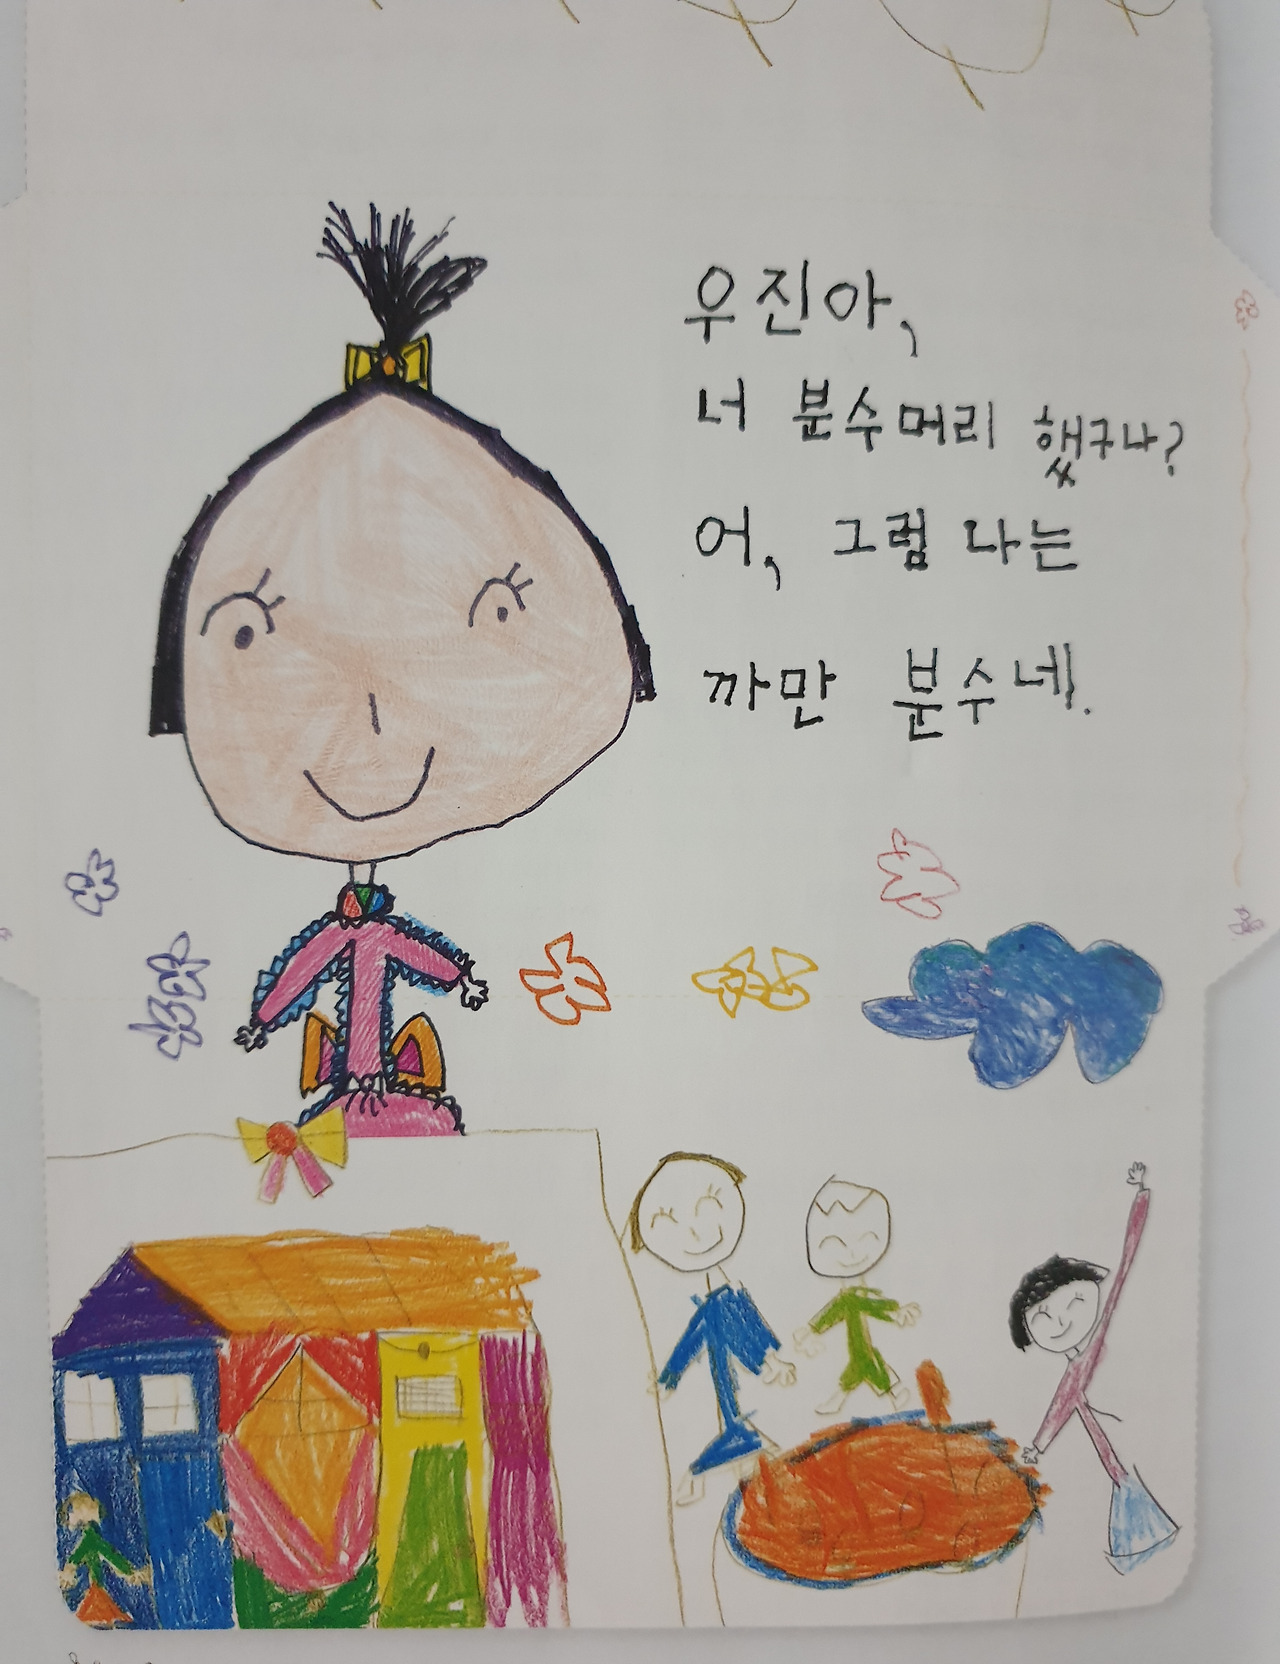 우진아,
너 분수머리 했구나?
어, 그럼 나는
까만 분수네.